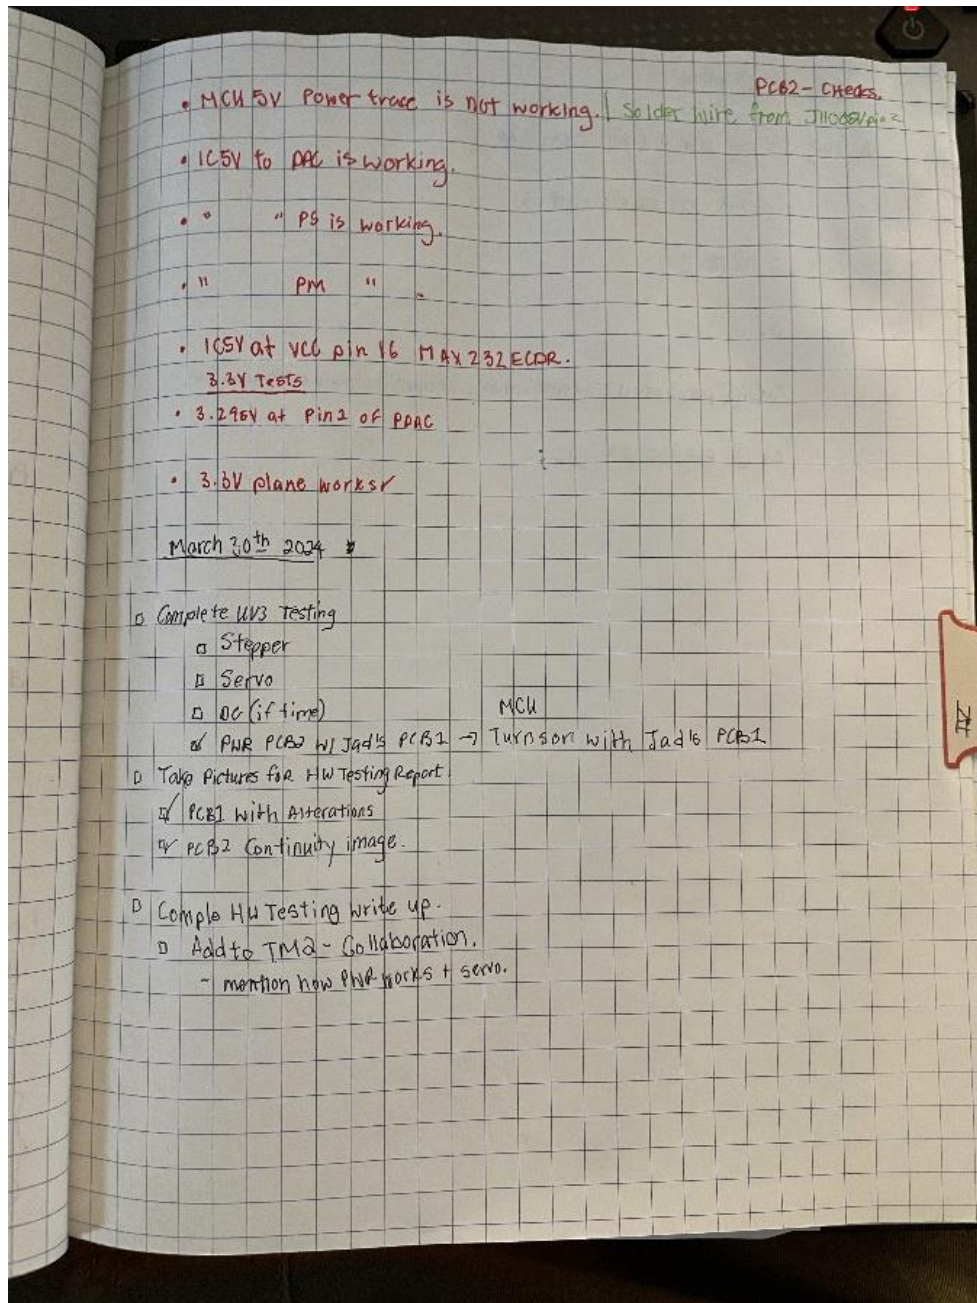 PCB2 - Checks.
• MCU 5V Power trace is not working. | Solder wire from
• IC5V to DAC is working.
• " " PS is working.
• " PM " .
• IC5V at VCC pin 16 MAX232ECDR.
3.3V Tests
• 3.296V at Pin2 of PDAC
• 3.3V plane works✓
March 30th 2024
□ Complete UV3 Testing
□ Stepper
□ Servo
□ DC (if time)
MCU
☑ PWR PCB2 w/ Jad's PCB1 → Turns on with Jad's PCB1
□ Take Pictures for HW Testing Report
☑ PCB1 with Alterations
☑ PCB2 Continuity image.
□ Comple HW Testing write up.
□ Add to TM2 - Collaboration.
- mention how PWR works + servo.